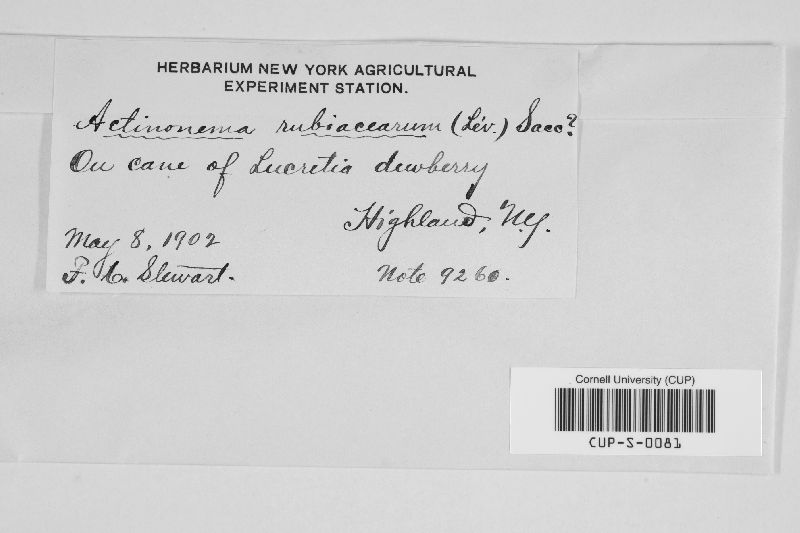 HERBARIUM NEW YORK AGRICULTURAL
EXPERIMENT STATION.
Actinonema rubiacearum (Lév.) Sacc?
On cane of Lucretia dewberry
Highland, N.Y.
May 8, 1902
F. C. Stewart. Note 9260.
Cornell University (CUP)
CUP-S-0081